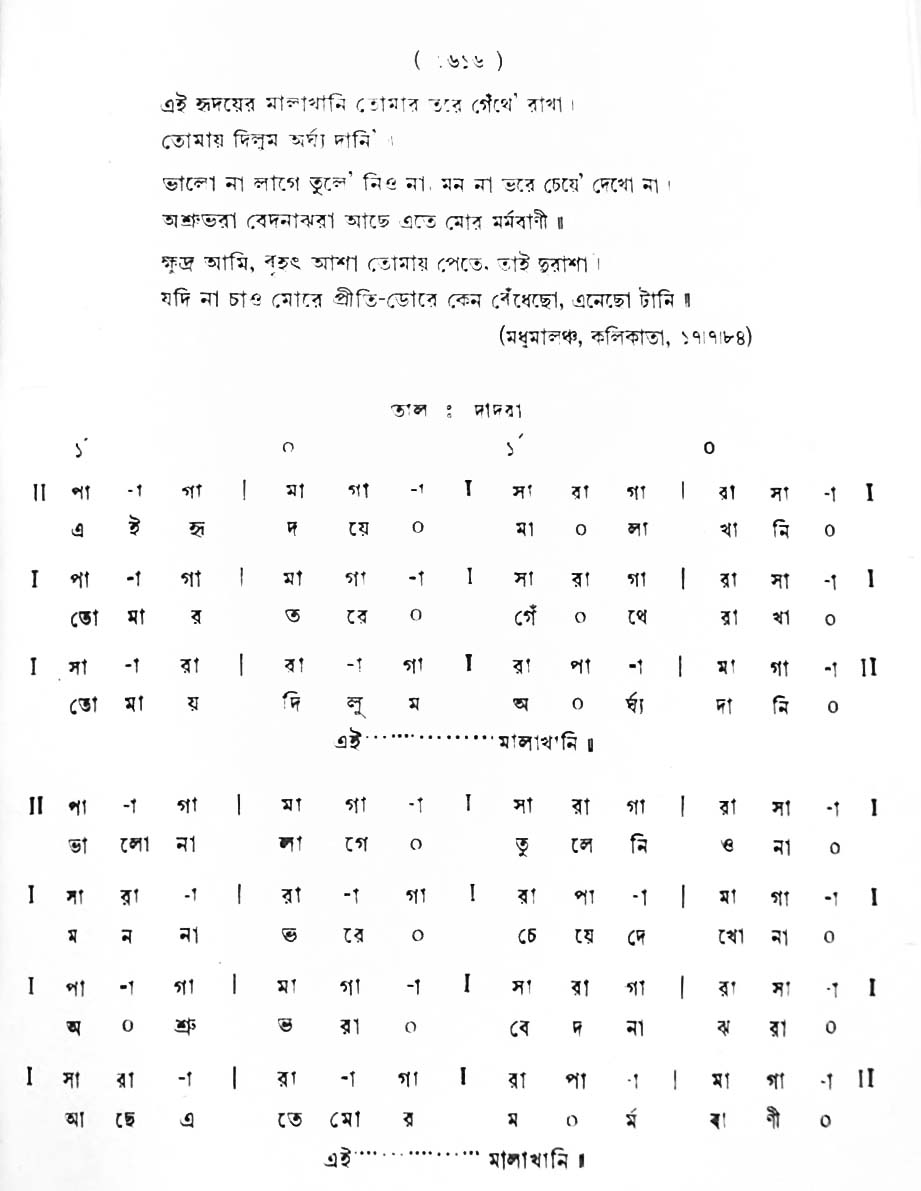 ( ৬১৬ )
এই হৃদয়ের মালাখানি তোমার তরে গেঁথে' রাখা।
তোমায় দিলুম অর্ঘ্য দানি'।
ভালো না লাগে তুলে' নিও না, মন না ভরে চেয়ে' দেখো না।
অশ্রুভরা বেদনাঝরা আছে এতে মোর মর্মবাণী॥
ক্ষুদ্র আমি, বৃহৎ আশা তোমায় পেতে, তাই দুরাশা।
যদি না চাও মোরে প্রীতি-ডোরে কেন বেঁধেছো, এনেছো টানি॥
(মধুমালঞ্চ, কলিকাতা, ১৭।৭।৮৪)
তাল : দাদরা
১´ ০ ১´ ০
II পা -া গা | মা গা -া I সা রা গা | রা সা -া I
এ ই হৃ দ য়ে ০ মা ০ লা খা নি ০
I পা -া গা | মা গা -া I সা রা গা | রা সা -া I
তো মা র ত রে ০ গেঁ ০ থে রা খা ০
I সা -া রা | রা -া গা I রা পা -া | মা গা -া II
তো মা য় দি লু ম অ ০ র্ঘ্য দা নি ০
এই................মালাখানি॥
II পা -া গা | মা গা -া I সা রা গা | রা সা -া I
ভা লো না লা গে ০ তু লে নি ও না ০
I সা রা -া | রা -া গা I রা পা -া | মা গা -া I
ম ন না ভ রে ০ চে য়ে দে খো না ০
I পা -া গা | মা গা -া I সা রা গা | রা সা -া I
অ ০ শ্রু ভ রা ০ বে দ না ঝ রা ০
I সা রা -া | রা -া গা I রা পা -া | মা গা -া II
আ ছে এ তে মো র ম ০ র্ম বা ণী ০
এই................মালাখানি॥